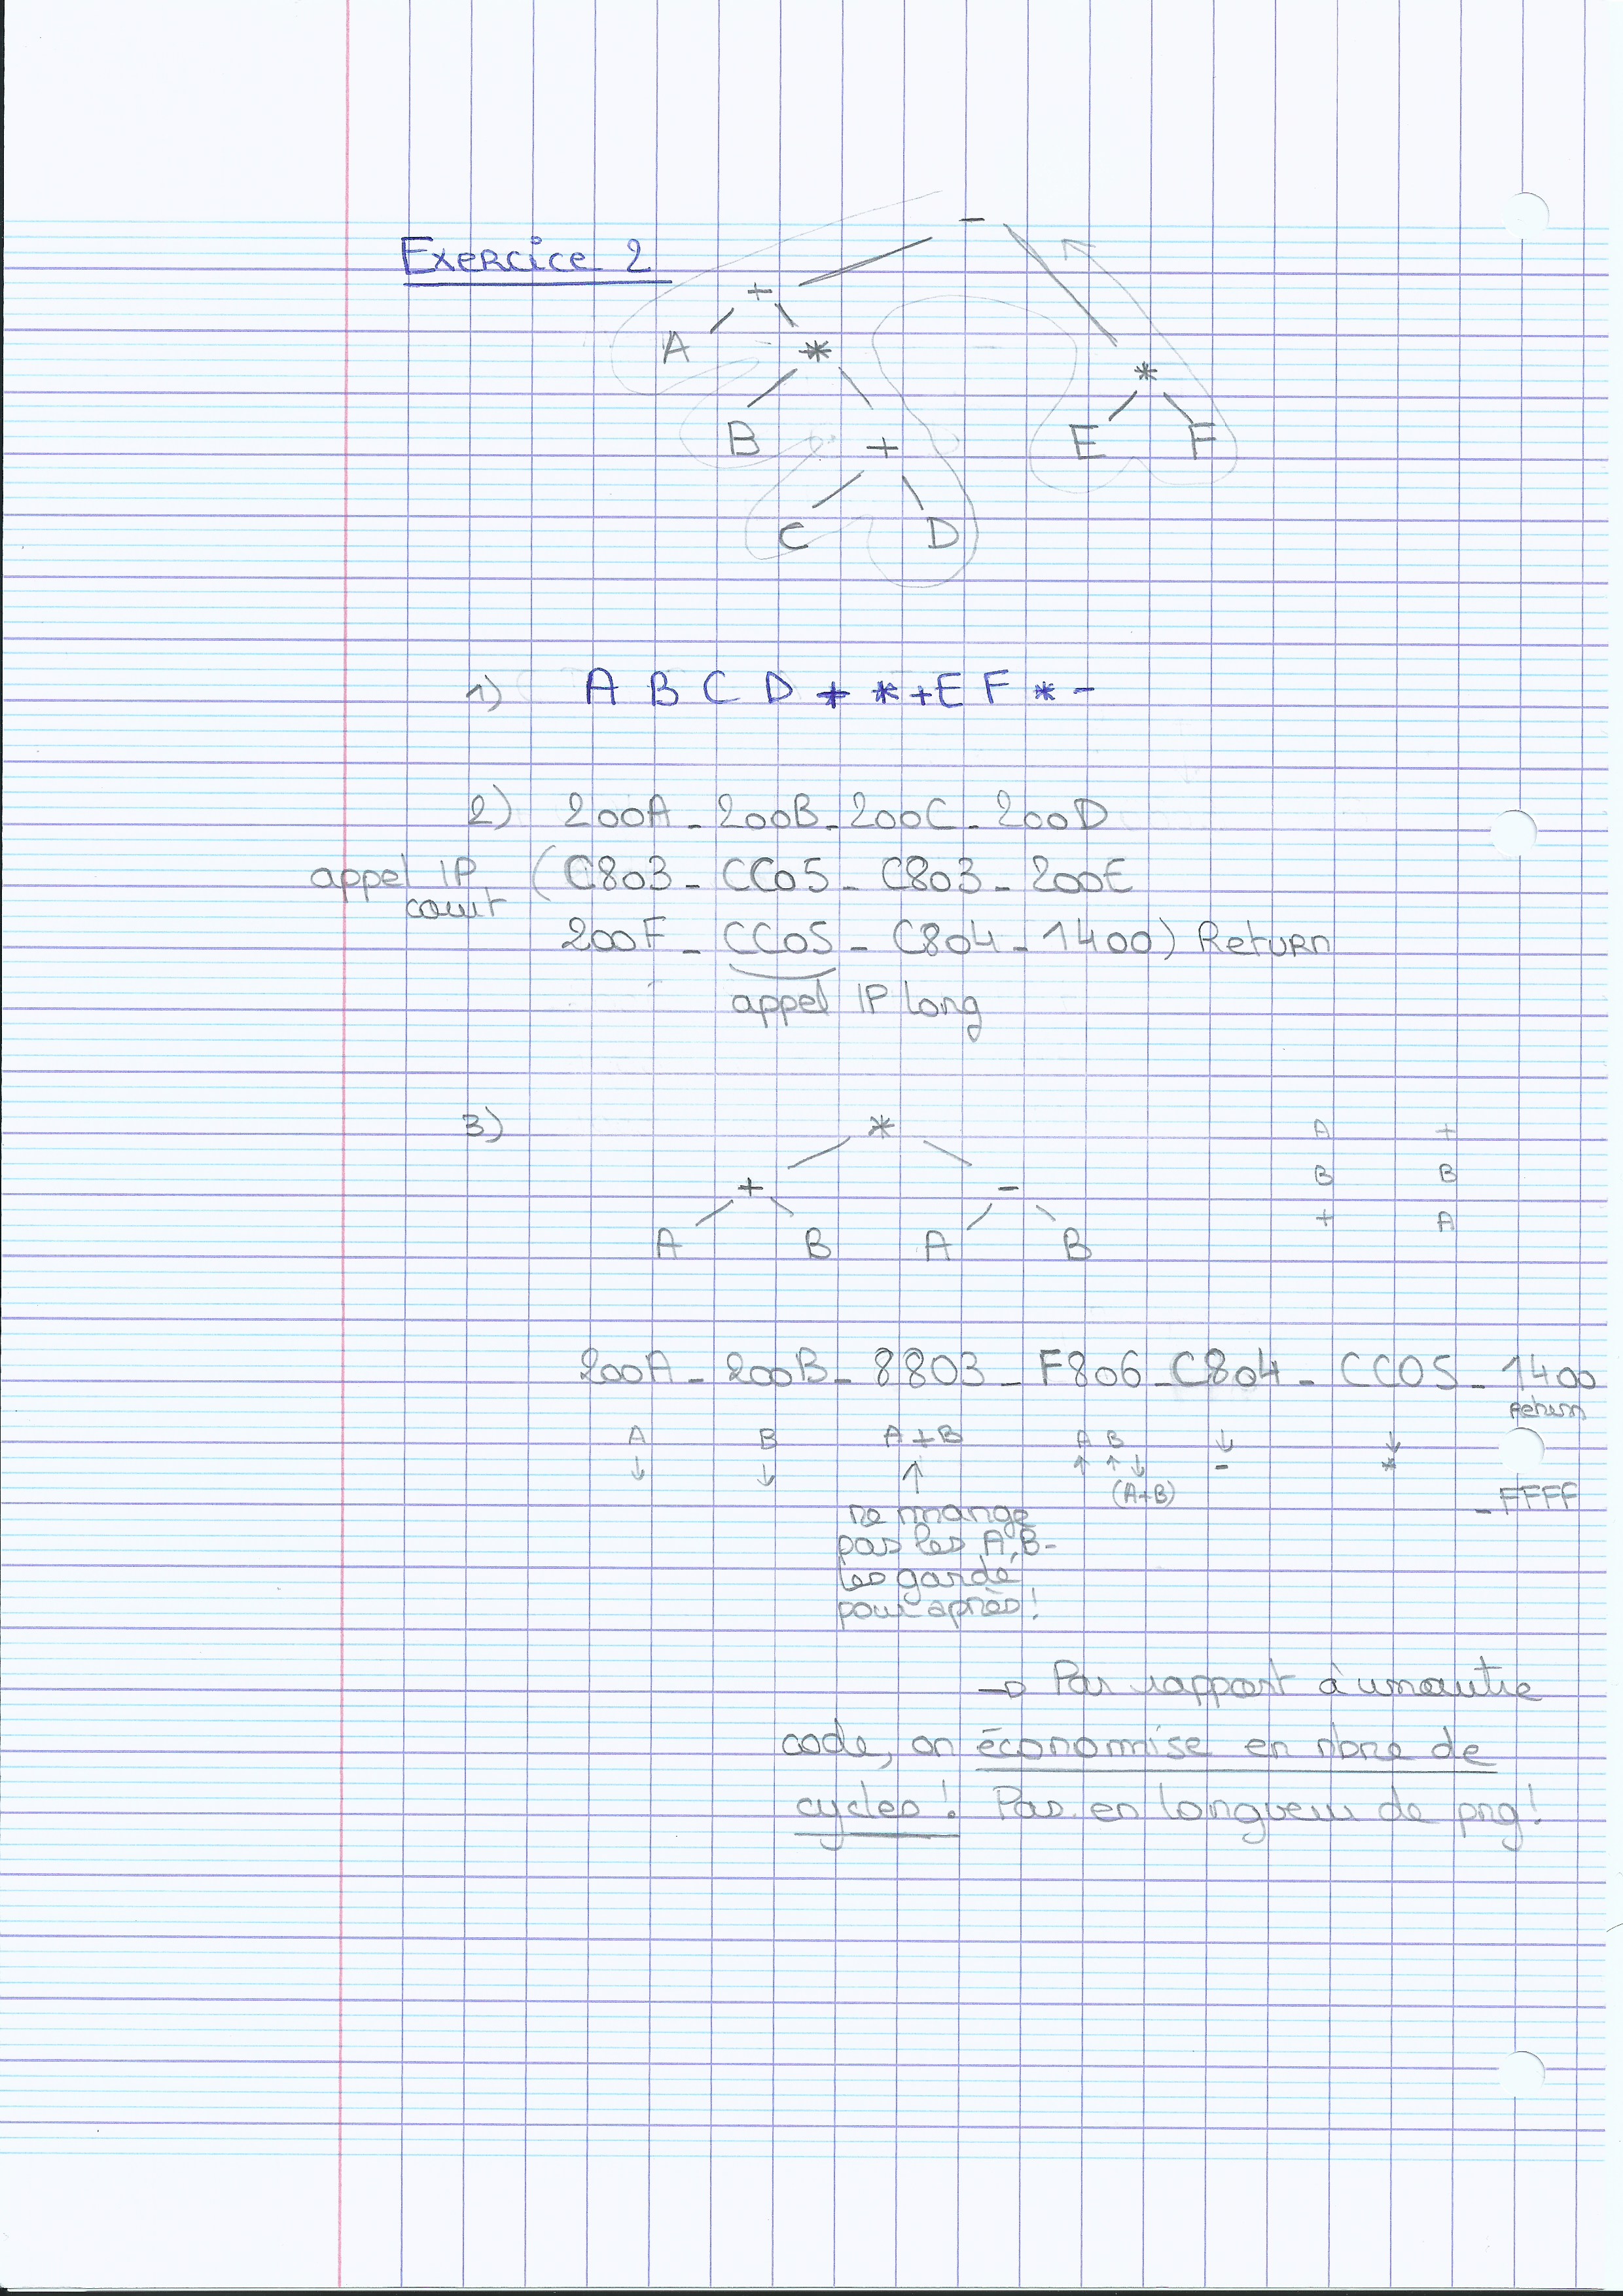 Exercice 2
-
+
A *
*
B + E F
C D
1) A B C D + * + E F * -
2) 200A - 200B - 200C - 200D
appel IP court (C803 - CC05 - C803 - 200E
200F - CC05 - C804 - 1400) Return
appel IP long
3) *
+ -
A B A B
A +
B B
+ A
200A - 200B - 8803 - F806 - C804 - CC05 - 1400
Return
A B A+B A B ↓ ↓
↓ ↓ ↑ ↑ ↑ ↓ - *
(A+B)
- FFFF
ne mange
pas les A,B-
les garde
pour après!
→ Par rapport à un autre
code, on économise en nbre de
cycles! Pas en longueur de prg!